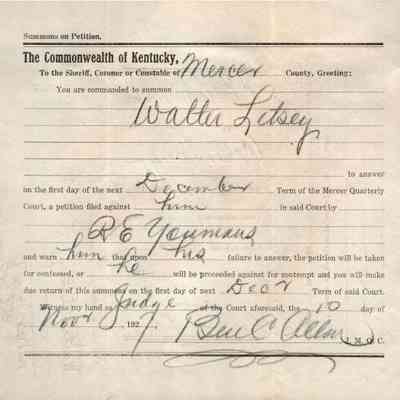 Summons on Petition.
The Commonwealth of Kentucky,
To the Sheriff, Coroner or Constable of Mercer County, Greeting:
You are commanded to summon
Walter Letsey
to answer
on the first day of the next December Term of the Mercer Quarterly
Court, a petition filed against him in said Court by
R E Youmans
and warn him that upon his failure to answer, the petition will be taken
for confessed, or he will be proceeded against for contempt and you will make
due return of this summons on the first day of next Decr Term of said Court.
Witness my hand as Judge of the Court aforesaid, the 10 day of
Novr 1927. Ben C Allen J. M. Q. C.